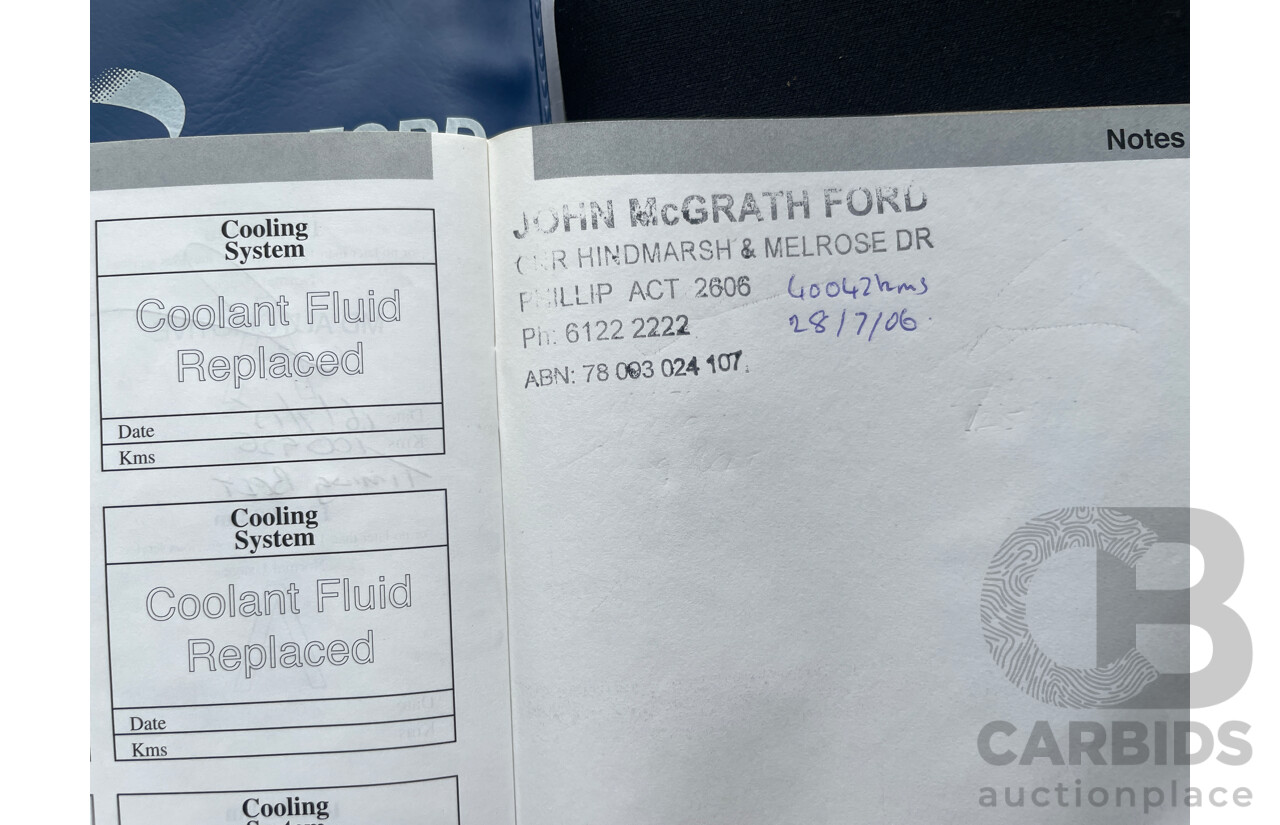 FORD
Cooling
System
Coolant Fluid
Replaced
Date
Kms
Cooling
System
Coolant Fluid
Replaced
Date
Kms
Cooling
System
Notes
JOHN McGRATH FORD
CNR HINDMARSH & MELROSE DR
PHILLIP ACT 2606 40042kms
Ph: 6122 2222 28/7/06
ABN: 78 003 024 107.
CB
CARBIDS
auctionplace